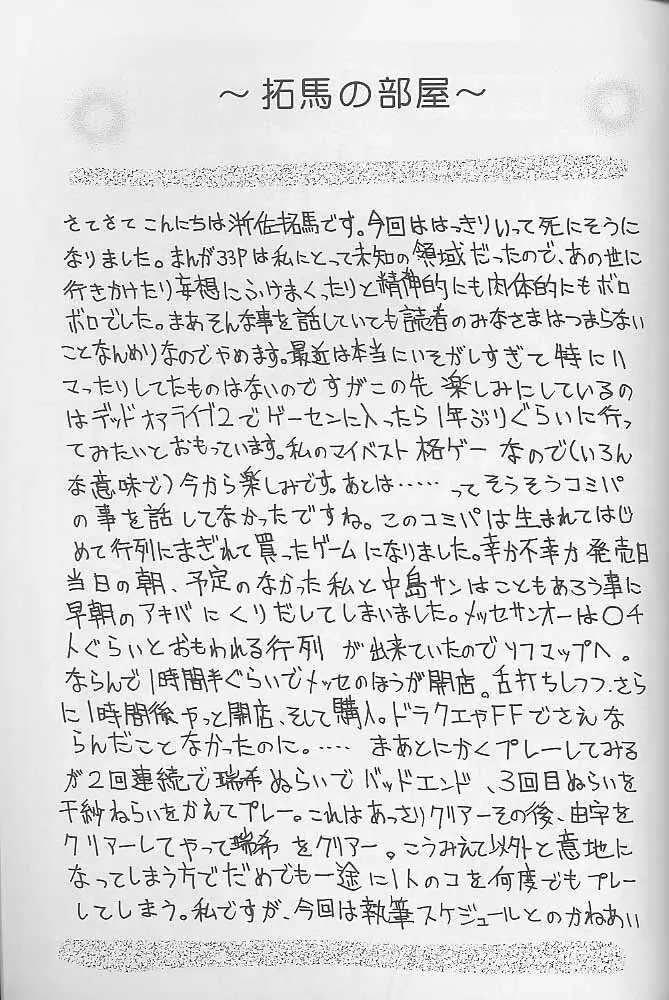 ～拓馬の部屋～
さてさてこんにちは浙佐拓馬です。今回ははっきりいって死にそうに
なりました。まんが33Pは私にとって未知の領域だったので、あの世に
行きかけたり妄想にふけまくったりと精神的にも肉体的にもボロ
ボロでした。まあそんな事を話していても読者のみなさまはつまらない
ことなんめりなのでやめます。最近は本当にいそがしすぎて特にハ
マったりしてたものはないのですがこの先楽しみにしているの
はデッドオアライブ2でゲーセンに入ったら1年ぶりぐらいに行っ
てみたいとおもっています。私のマイベスト格ゲーなので(いろん
な意味で)今から楽しみです。あとは……ってそうそうコミパ
の事を話してなかったですね。このコミパは生まれてはじ
めて行列にまぎれて買ったゲームになりました。幸か不幸か発売日
当日の朝、予定のなかった私と中島サンはこともあろう事に
早朝のアキバにくりだしてしまいました。メッセサンオーは〇千
人ぐらいとおもわれる行列が出来ていたのでソフマップへ。
ならんで1時間半ぐらいでメッセのほうが開店。舌打ちしつつ、さら
に1時間後やっと開店、そして購入。ドラクエやFFでさえな
らんだことなかったのに。……まあとにかくプレーしてみる
が2回連続で瑞希ぬらいでバッドエンド、3回目ぬらいを
千紗ねらいをかえてプレー。これはあっさりクリアーその後、由宇を
クリアーしてやって瑞希をクリアー。こうみえて以外と意地に
なってしまう方でだめでも一途に1人のコを何度でもプレー
してしまう。私ですが、今回は執筆スケジュールとのかねあい